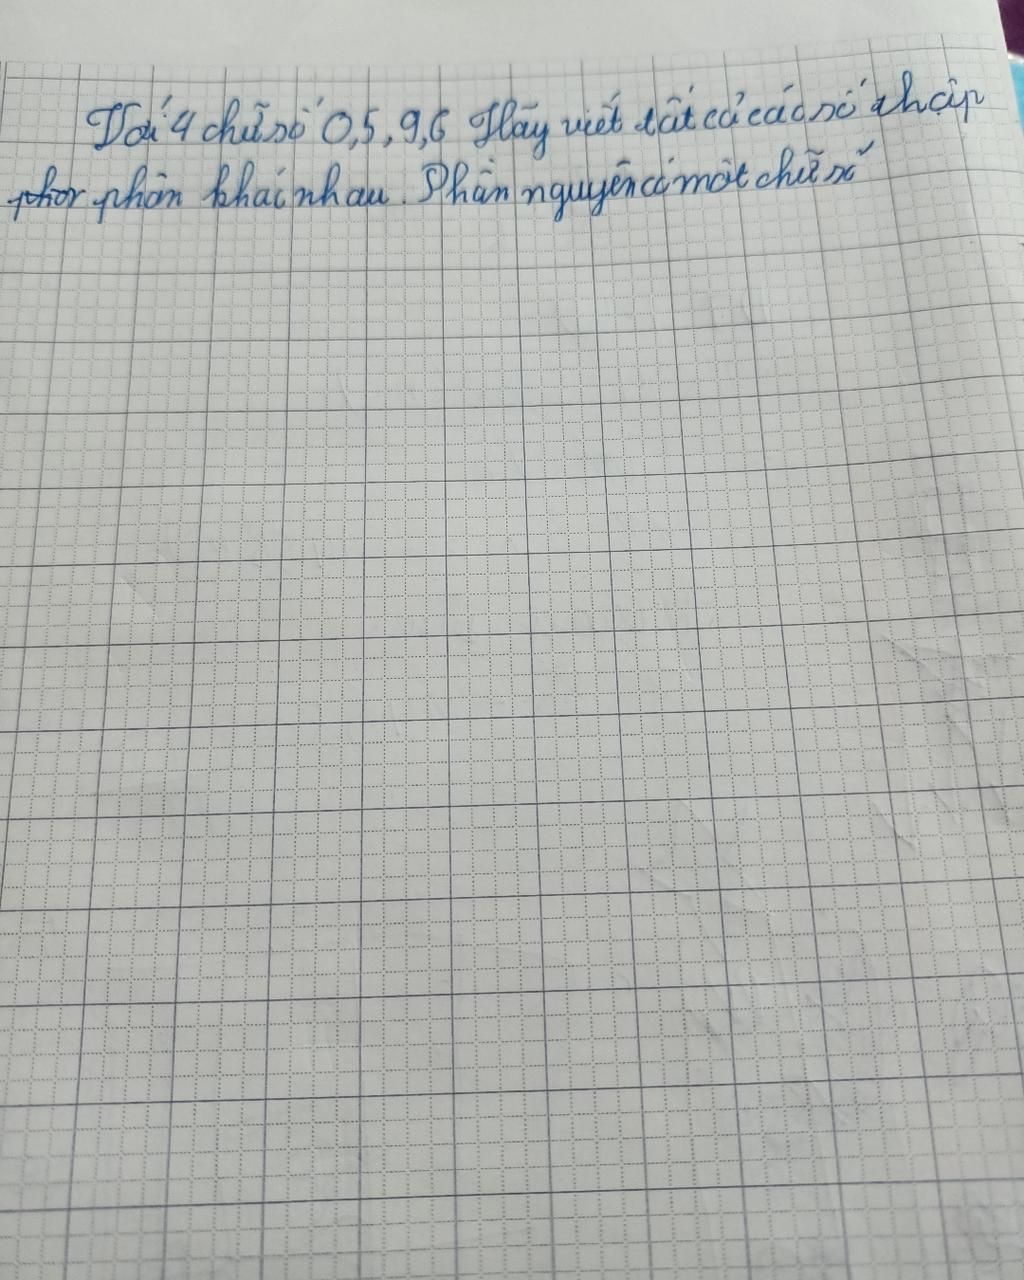 Với 4 chữ số 0,5,9,6 Hãy viết tất cả các số thập
phâr phân khác nhau. Phần nguyên có một chữ số